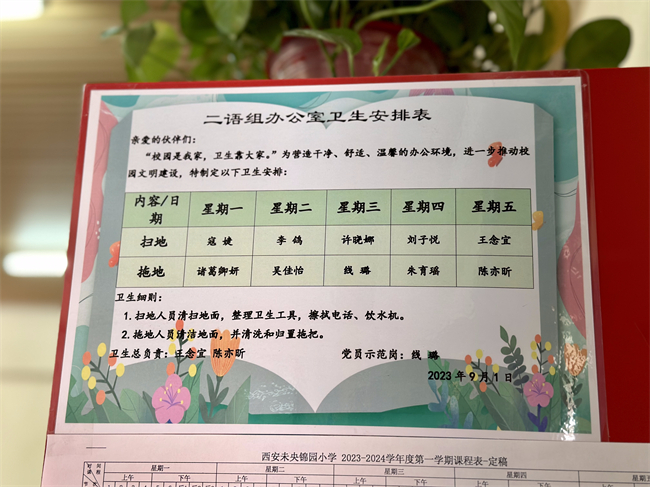 二语组办公室卫生安排表
亲爱的伙伴们：
“校园是我家，卫生靠大家。”为营造干净、舒适、温馨的办公环境，进一步推动校
园文明建设，特制定以下卫生安排：
内容/日期 星期一 星期二 星期三 星期四 星期五
扫地 寇婕 李鸽 许晓娜 刘子悦 王念宣
拖地 诸葛卿妍 吴佳怡 线璐 朱育瑶 陈亦昕
卫生细则：
1.扫地人员清扫地面，整理卫生工具，擦拭电话、饮水机。
2.拖地人员清洁地面，并清洗和归置拖把。
卫生总负责：王念宣 陈亦昕 党员示范岗：线 璐
2023年9月1日
西安未央锦园小学 2023-2024学年度第一学期课程表-定稿
星期一 星期二 星期三 星期四 星期五
上午 下午 上午 下午 上午 下午 上午 下午